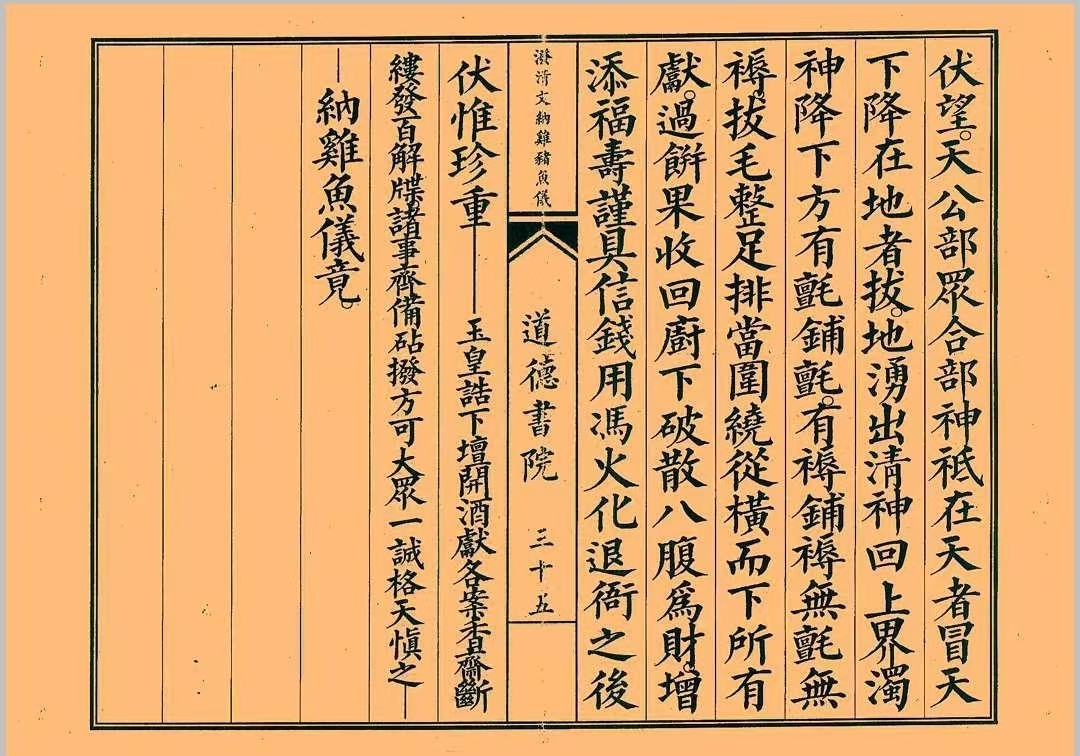 伏望。天公部眾合部神祇在天者冒天
下降在地者拔。地湧出清神回上界濁
神降下方有氈鋪氈。有褥鋪褥無氈無
褥。拔毛整足排當圍繞從橫而下所有
獻。過餅果收回廚下破散八腹為財。增
添福壽謹具信錢用馮火化退衙之後
澄清文納雞豬魚儀
道德書院 三十五
伏惟珍重——玉皇誥下壇開酒獻各案香齋斷
縷發百解牒諸事齊備砧撥方可大眾一誠格天慎之—
—納雞魚儀竟。